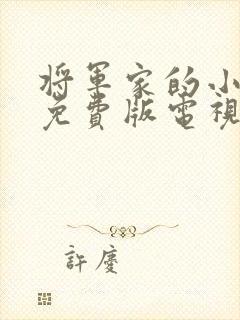 將軍家的小
免費版電視
許慶